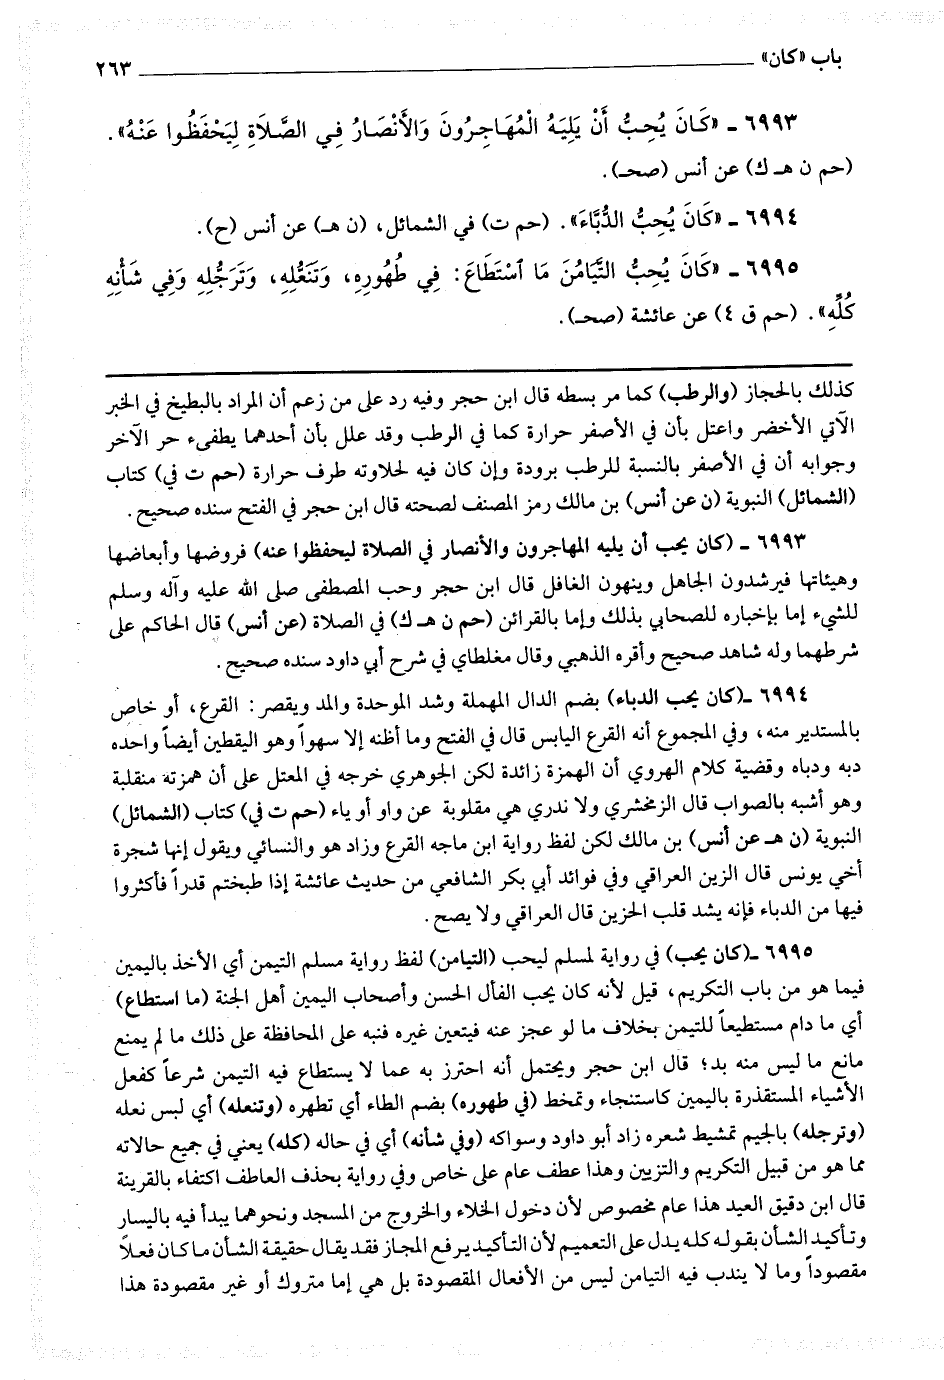 باب «كان» ٢٦٣
٦٩٩٣ ـ «كَانَ يُحِبُّ أَنْ يَلِيَهُ الْمُهَاجِرُونَ وَالْأَنْصَارُ فِي الصَّلَاةِ لِيَحْفَظُوا عَنْهُ».
(حم ن هـ ك) عن أنس (صحـ).
٦٩٩٤ ـ «كَانَ يُحِبُّ الدُّبَّاءَ». (حم ت) في الشمائل، (ن هـ) عن أنس (ح).
٦٩٩٥ ـ «كَانَ يُحِبُّ التَّيَامُنَ مَا اسْتَطَاعَ: فِي طُهُورِهِ، وَتَنَعُّلِهِ، وَتَرَجُّلِهِ وَفِي شَأْنِهِ
كُلِّهِ». (حم ق ٤) عن عائشة (صحـ).
كذلك بالحجاز (والرطب) كما مر بسطه قال ابن حجر وفيه رد على من زعم أن المراد بالبطيخ في الخبر
الآتي الأخضر واعتل بأن في الأصفر حرارة كما في الرطب وقد علل بأن أحدهما يطفىء حر الآخر
وجوابه أن في الأصفر بالنسبة للرطب برودة وإن كان فيه لحلاوته طرف حرارة (حم ت في) كتاب
(الشمائل) النبوية (ن عن أنس) بن مالك رمز المصنف لصحته قال ابن حجر في الفتح سنده صحيح.
٦٩٩٣ ـ (كان يحب أن يليه المهاجرون والأنصار في الصلاة ليحفظوا عنه) فروضها وأبعاضها
وهيئاتها فيرشدون الجاهل وينهون الغافل قال ابن حجر وحب المصطفى صلى الله عليه وآله وسلم
للشيء إما بإخباره للصحابي بذلك وإما بالقرائن (حم ن هـ ك) في الصلاة (عن أنس) قال الحاكم على
شرطهما وله شاهد صحيح وأقره الذهبي وقال مغلطاي في شرح أبي داود سنده صحيح.
٦٩٩٤ ـ(كان يحب الدباء) بضم الدال المهملة وشد الموحدة والمد ويقصر: القرع، أو خاص
بالمستدير منه، وفي المجموع أنه القرع اليابس قال في الفتح وما أظنه إلا سهواً وهو اليقطين أيضاً واحده
دبه ودباه وقضية كلام الهروي أن الهمزة زائدة لكن الجوهري خرجه في المعتل على أن همزته منقلبة
وهو أشبه بالصواب قال الزمخشري ولا ندري هي مقلوبة عن واو أو ياء (حم ت في) كتاب (الشمائل)
النبوية (ن هـ عن أنس) بن مالك لكن لفظ رواية ابن ماجه القرع وزاد هو والنسائي ويقول إنها شجرة
أخي يونس قال الزين العراقي وفي فوائد أبي بكر الشافعي من حديث عائشة إذا طبختم قدراً فأكثروا
فيها من الدباء فإنه يشد قلب الحزين قال العراقي ولا يصح.
٦٩٩٥ ـ(كان يحب) في رواية لمسلم ليحب (التيامن) لفظ رواية مسلم التيمن أي الأخذ باليمين
فيما هو من باب التكريم، قيل لأنه كان يحب الفأل الحسن وأصحاب اليمين أهل الجنة (ما استطاع)
أي ما دام مستطيعاً للتيمن بخلاف ما لو عجز عنه فيتعين غيره فنبه على المحافظة على ذلك ما لم يمنع
مانع ما ليس منه بد؛ قال ابن حجر ويحتمل أنه احترز به عما لا يستطاع فيه التيمن شرعاً كفعل
الأشياء المستقذرة باليمين كاستنجاء وتمخط (في طهوره) بضم الطاء أي تطهره (وتنعله) أي لبس نعله
(وترجله) بالجيم تمشيط شعره زاد أبو داود وسواكه (وفي شأنه) أي في حاله (كله) يعني في جميع حالاته
مما هو من قبيل التكريم والتزيين وهذا عطف عام على خاص وفي رواية بحذف العاطف اكتفاء بالقرينة
قال ابن دقيق العيد هذا عام مخصوص لأن دخول الخلاء والخروج من المسجد ونحوهما يبدأ فيه باليسار
وتأكيد الشأن بقوله كله يدل على التعميم لأن التأكيد يرفع المجاز فقد يقال حقيقة الشأن ما كان فعلاً
مقصوداً وما لا يندب فيه التيامن ليس من الأفعال المقصودة بل هي إما متروك أو غير مقصودة هذا